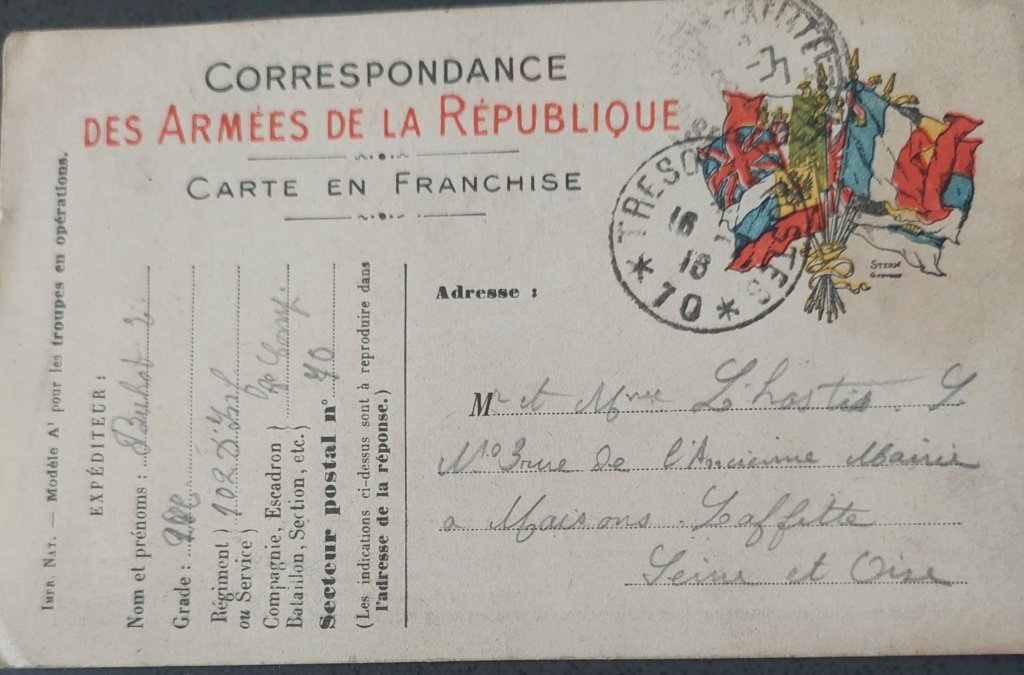 CORRESPONDANCE
DES ARMÉES DE LA RÉPUBLIQUE
CARTE EN FRANCHISE
TRESOR POSTES
16
18
* 70 *
STERN
Adresse :
Mr et Mme L'hostis
No 3 rue de l'Ancienne Mairie
a Maisons-Laffitte
Seine et Oise
IMPR. NAT. — Modèle A1 pour les troupes en opérations.
EXPÉDITEUR :
Nom et prénoms :
Grade :
Régiment ou Service) 102
Compagnie, Escadron
Bataillon, Section, etc.
Secteur postal n° 70
(Les indications ci-dessus sont à reproduire dans
l'adresse de la réponse.)